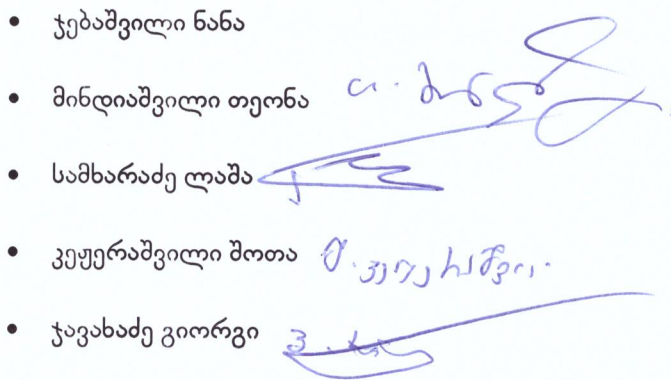 • ჯებაშვილი ნანა
• მინდიაშვილი თეონა
• სამხარაძე ლაშა
• კეჟერაშვილი შოთა
• ჯავახაძე გიორგი